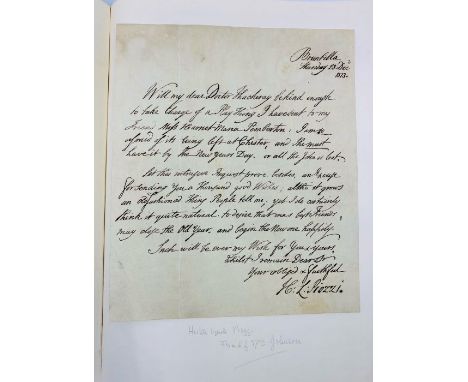 Brynbella
Monday 13: Dec:
1813.
Will my dear Doctor Thackeray be kind enough
to take Charge of a Play Thing I have sent to my
Friend Miss Harriet Maria Pemberton: I am
afraid of its being left at Chester, and She must
have it by the New Years Day, or all the Joke is lost.
Let this whimsical Request prove besides, an Excuse
for sending you a Thousand good Wishes; altho' it grows
an old fashioned Thing People tell me; yet I do certainly
think it quite natural to desire that one's best Friends
may close the Old Year, and begin the New one happily.
Such will be ever my Wish for You & Yours,
Whilst I remain Dear Dr
Your obliged & faithful
H: L: Piozzi.
Hester Lynch Piozzi
Friend of Johnson